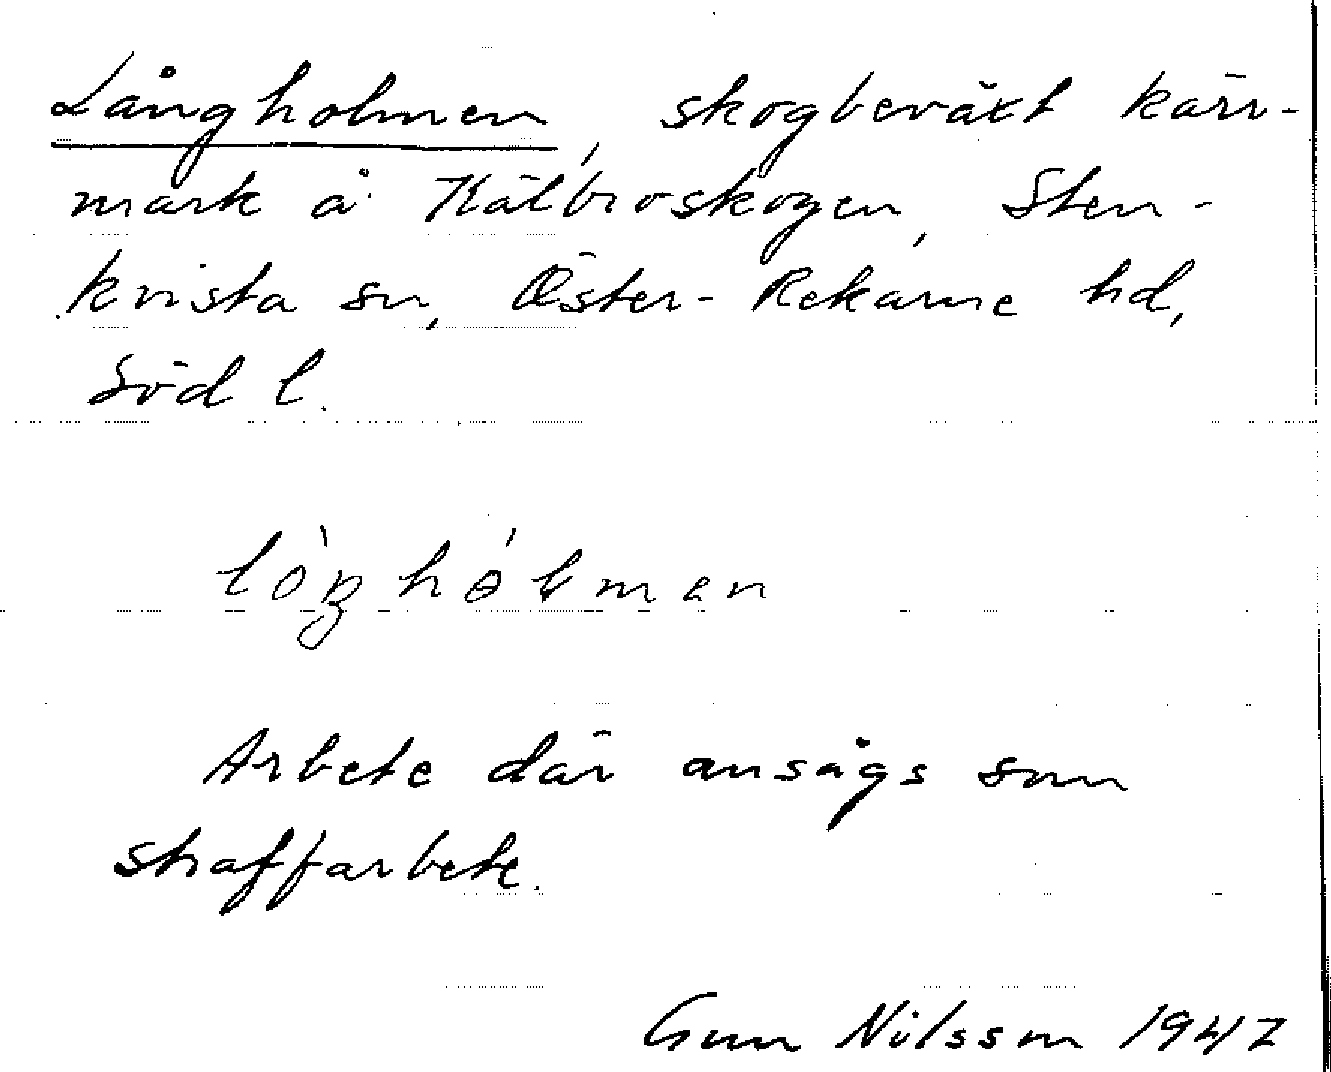 Långholmen, skogbeväxt kärr-
mark å Kälbroskogen, Sten-
kvista sn, Öster-Rekarne hd,
Söd l.
Arbete där ansågs som
straffarbete.
Gun Nilsson 1947